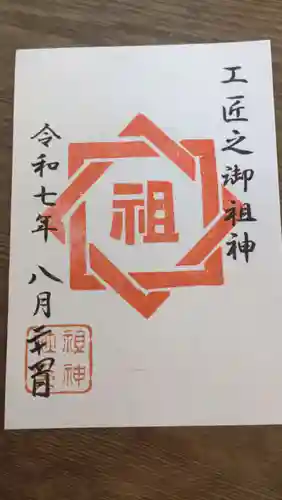 工匠之御祖神
祖
令和七年 八月二十四日
祖神